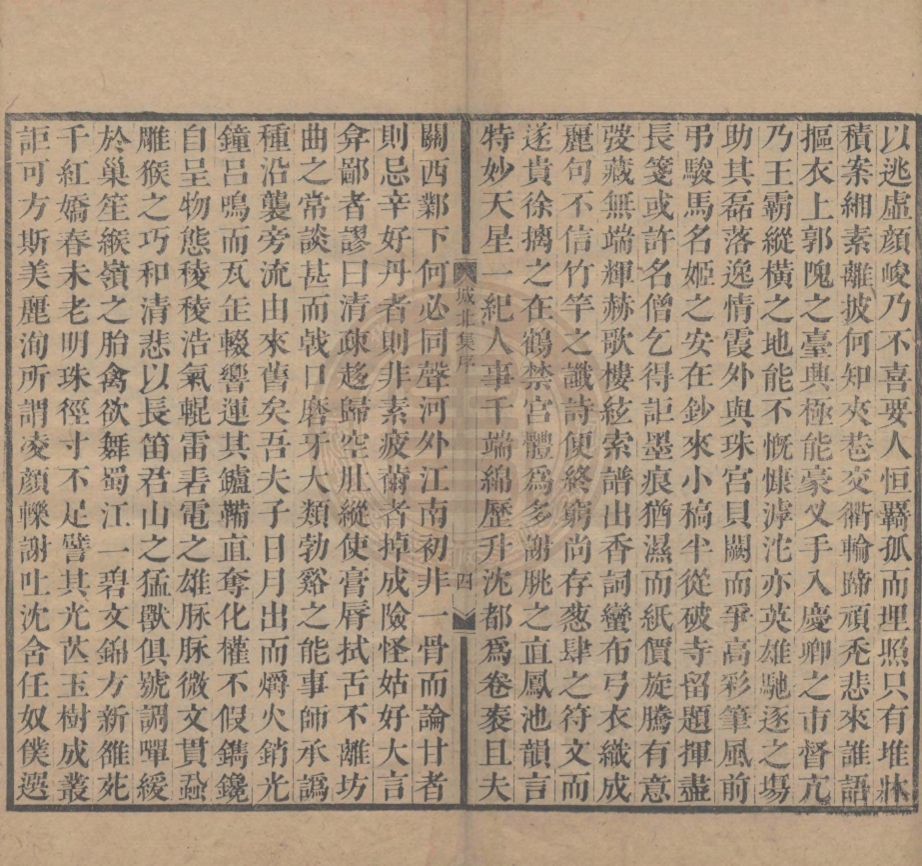 以逃虛顔峻乃不喜要人恒羇孤而理照只有堆牀
積案緗素離披何知夾巷交衢輪蹄頑禿悲來誰語
摳衣上郭隗之臺興極能豪叉手入慶卿之市督亢
乃王霸縱橫之地能不慨慷滹沱亦英雄馳逐之場
助其磊落逸情霞外與珠宮貝闕而爭高彩筆風前
弔駿馬名姬之安在鈔來小稿半從破寺留題揮盡
長箋或許名僧乞得詎墨痕猶濕而紙價旋騰有意
弢藏無端輝赫歌樓絃索譜出香詞蠻布弓衣織成
麗句不信竹竿之讖詩便終窮尚存葱肆之符文而
遂貴徐摛之在鶴禁宮體爲多謝朓之直鳳池韻言
特妙天星一紀人事千端綿歷升沈都爲卷袠且夫
城北集序
四
關西鄴下何必同聲河外江南初非一骨而論甘者
則忌辛好丹者則非素疲薾者掉成險怪姑好大言
弇鄙者謬曰淸疎趍歸空肚縱使膏脣拭舌不離坊
曲之常談甚而戟口磨牙大類勃谿之能事師承譌
種沿襲旁流由來舊矣吾夫子日月出而爝火銷光
鐘呂鳴而瓦缶輟響運其鑪鞴直奪化權不假鐫鑱
自呈物態稜稜浩氣輥雷砉電之雄脈脈微文貫蝨
雕猴之巧和淸悲以長笛君山之猛獸俱號調嘽緩
於巢笙緱嶺之胎禽欲舞蜀江一碧文錦方新雒苑
千紅嬌春未老明珠徑寸不足譬其光芒玉樹成叢
詎可方斯美麗洵所謂凌顔轢謝吐沈含任奴僕選